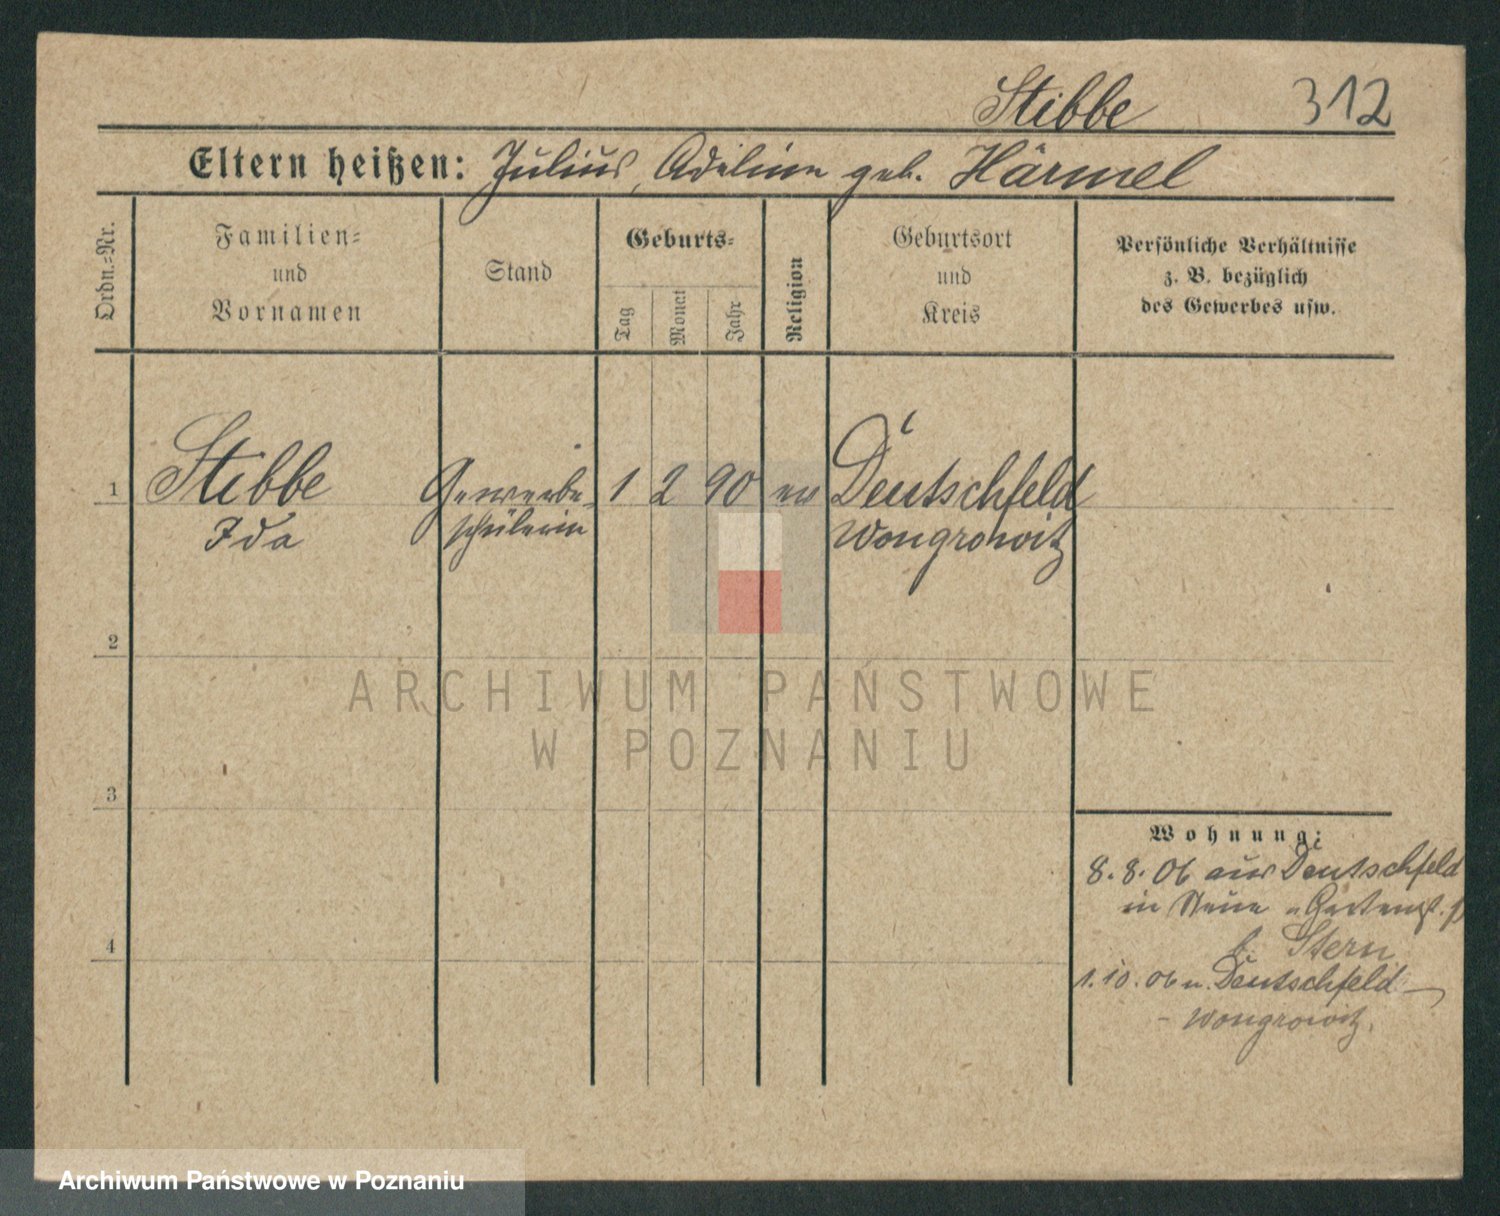 Stibbe 312
Eltern heißen: Julius, Adeline geb. Härmel
Ordn.=Nr.
Familien=
und
Vornamen
Stand
Geburts=
Tag
Monat
Jahr
Religion
Geburtsort
und
Kreis
Persönliche Verhältnisse
z. B. bezüglich
des Gewerbes usw.
1 Stibbe Gewerbe- 1 2 90 ev Deutschfeld
Ida schülerin Wongrowitz
2
ARCHIWUM PAŃSTWOWE
W POZNANIU
3
Wohnung:
8. 8. 06 aus Deutschfeld
in Neue Gartenst.
4
b. Stern
1. 10. 06 n. Deutschfeld –
– Wongrowitz.
Archiwum Państwowe w Poznaniu